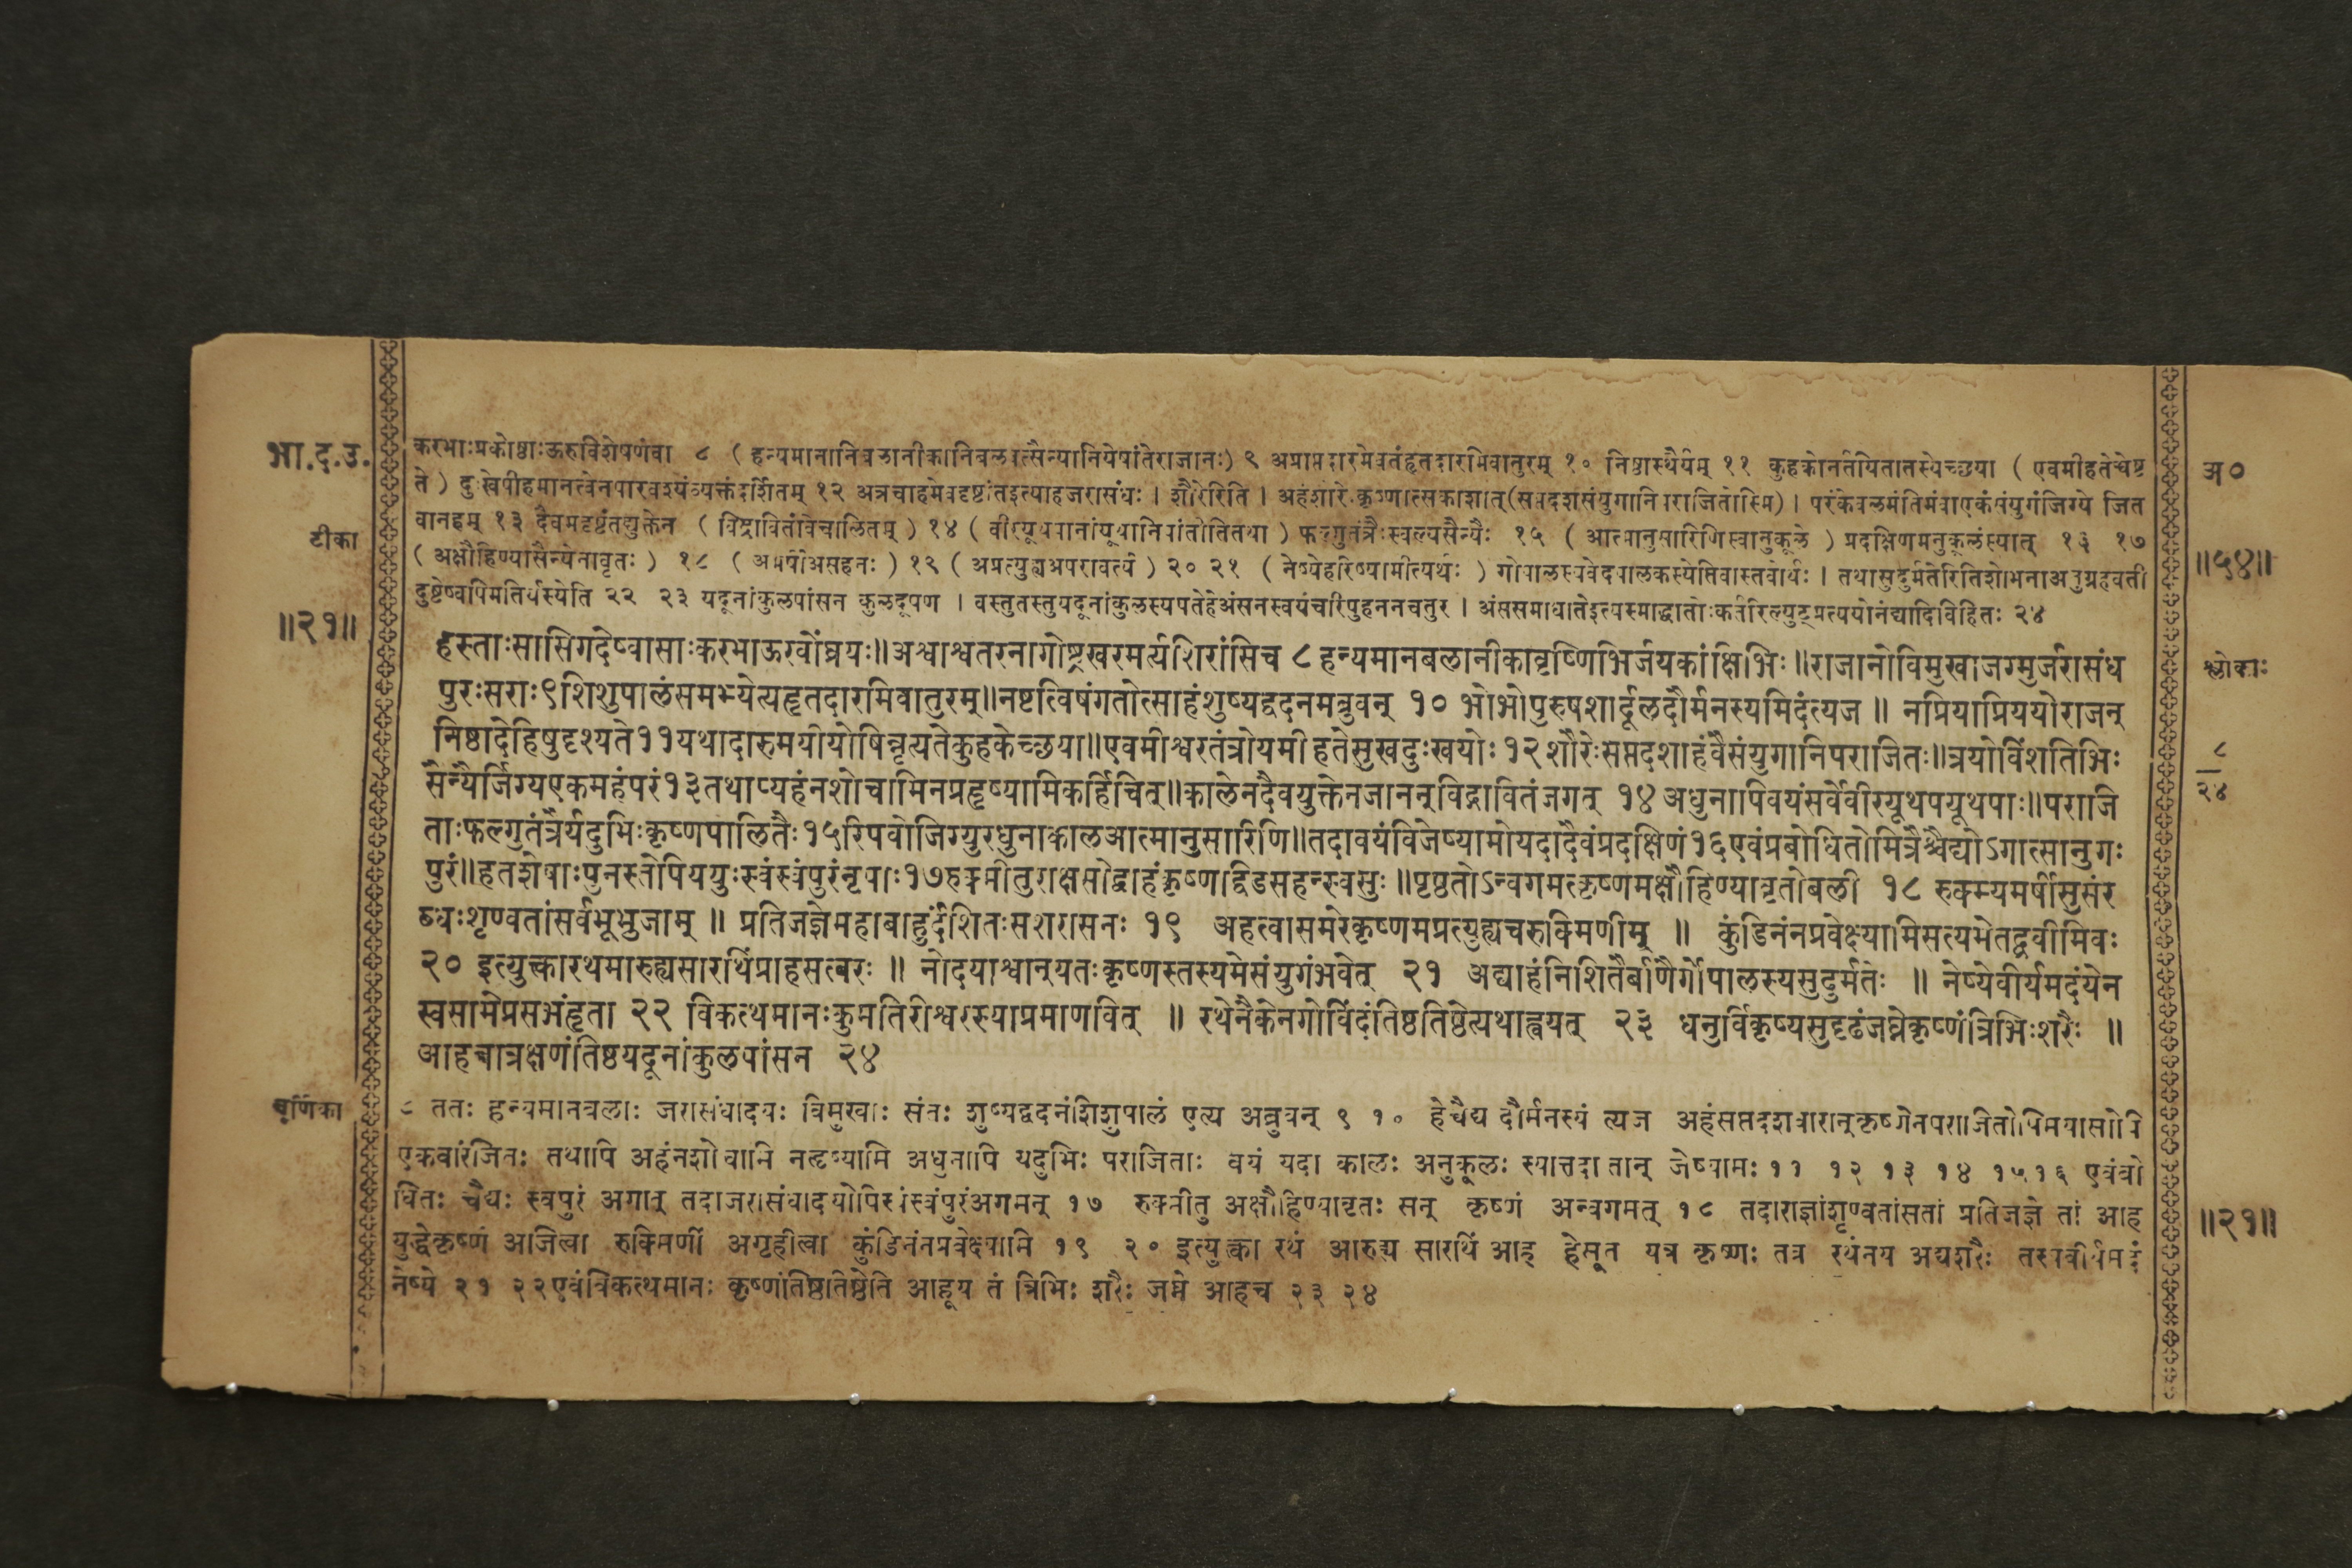 भा.द.उ.
करभाःप्रकोष्ठाःऊरुविशेषणंवा ८ (हन्यमानानिबलानीकानिबलवत्सैन्यानियेषांतेराजानः) ९ अप्राप्तदारमेवतंहृतदारमिवातुरम् १० निष्ठास्थैर्यम् ११ कुहकोनर्तयितातस्येच्छया (एवमीहतेचेष्ट
ते) दुःखेपीहमानत्वेनपारवश्यंव्यक्तंदर्शितम् १२ अत्रचाहमेवदृष्टांतइत्याहजरासंधः । शौरेरिति । अहंशौरेःकृष्णात्सकाशात्(सप्तदशसंयुगानिपराजितोस्मि) । परंकेवलमंतिमंवाएकंसंयुगंजिग्ये जित
वानहम् १३ दैवमदृष्टंतद्युक्तेन (विद्रावितंविचालितम्) १४ (वीरयूथपानांयूथानिपांतीतितथा) फल्गुतंत्रैःस्वल्पसैन्यैः १५ (आत्मानुसारिणिस्वानुकूले) प्रदक्षिणमनुकूलंस्यात् १६ १७
(अक्षौहिण्यासैन्येनावृतः) १८ (अमर्षीअसहनः) १९ (अप्रत्युह्यअपरावर्त्य) २० २१ (नेष्येहरिष्यामीत्यर्थः) गोपालस्यवेदपालकस्येतिवास्तवोर्थः । तथासुदुर्मतेरितिशोभनाअनुग्रहवती
दुष्टेष्वपिमतिर्यस्येति २२ २३ यदूनांकुलपांसन कुलदूषण । वस्तुतस्तुयदूनांकुलस्यपतेहेअंसनस्वयंचारिपुहननचतुर । अंससमाधातेइत्यस्माद्धातोःकर्तरिल्युट्प्रत्ययोनंद्यादिविहितः २४
टीका
॥२१॥
हस्ताःसासिगदेष्वासाःकरभाऊरवोंघ्रयः॥अश्वाश्वतरनागोष्ट्रखरमर्त्यशिरांसिच ८ हन्यमानबलानीकावृष्णिभिर्जयकांक्षिभिः॥राजानोविमुखाजग्मुर्जरासंध
पुरःसराः९शिशुपालंसमभ्येत्यहृतदारमिवातुरम्॥नष्टत्विषंगतोत्साहंशुष्यद्वदनमब्रुवन् १० भोभोपुरुषशार्दूलदौर्मनस्यमिदंत्यज ॥ नप्रियाप्रिययोराजन्
निष्ठादेहिषुदृश्यते११यथादारुमयीयोषिन्नृत्यतेकुहकेच्छया॥एवमीश्वरतंत्रोयमीहतेसुखदुःखयोः १२ शौरेःसप्तदशाहंवैसंयुगानिपराजितः॥त्रयोविंशतिभिः
सैन्यैर्जिग्यएकमहंपरं१३तथाप्यहंनशोचामिनप्रहृष्यामिकर्हिचित्॥कालेनदैवयुक्तेनजानन्विद्रावितंजगत् १४ अधुनापिवयंसर्वेवीरयूथपयूथपाः॥पराजि
ताःफल्गुतंत्रैर्यदुभिःकृष्णपालितैः १५रिपवोजिग्युरधुनाकालआत्मानुसारिणि॥तदावयंविजेष्यामोयदादैवंप्रदक्षिणं१६एवंप्रबोधितोमित्रैश्चैद्योऽगात्सानुगः
पुरं॥हतशेषाःपुनस्तेपिययुःस्वंस्वंपुरंनृपाः१७रुक्मीतुराक्षसोद्वाहंकृष्णद्विडसहन्स्वसुः॥पृष्ठतोऽन्वगमत्कृष्णमक्षौहिण्यावृतोबली १८ रुक्म्यमर्षीसुसंर
ब्धःशृण्वतांसर्वभूभुजाम् ॥ प्रतिजज्ञेमहाबाहुर्दंशितःसशरासनः १९ अहत्वासमरेकृष्णमप्रत्युह्यचरुक्मिणीम् ॥ कुंडिनंनप्रवेक्ष्यामिसत्यमेतद्ब्रवीमिवः
२० इत्युक्त्वारथमारुह्यसारथिंप्राहसत्वरः ॥ नोदयाश्वान्यतःकृष्णस्तस्यमेसंयुगंभवेत् २१ अद्याहंनिशितैर्बाणैर्गोपालस्यसुदुर्मतेः ॥ नेष्येवीर्यमदंयेन
स्वसामेप्रसभंहृता २२ विकत्थमानःकुमतिरीश्वरस्याप्रमाणवित् ॥ रथेनैकेनगोविंदंतिष्ठतिष्ठेत्यथाह्वयत् २३ धनुर्विकृष्यसुदृढंजघ्नेकृष्णंत्रिभिःशरैः ॥
आहचात्रक्षणंतिष्ठयदूनांकुलपांसन २४
चूर्णिका
८ ततः हन्यमानबलाः जरासंधादयः विमुखाः संतः शुष्यद्वदनंशिशुपालं एत्य अब्रुवन् ९ १० हेचैद्य दौर्मनस्यं त्यज अहंसप्तदशवारान्कृष्णेनपराजितोपिमयासोपि
एकवारंजितः तथापि अहंनशोचामि नत्दृष्यामि अधुनापि यदुभिः पराजिताः वयं यदा कालः अनुकूलः स्यात्तदा तान् जेष्यामः ११ १२ १३ १४ १५ १६ एवंबो
धितः चैद्यः स्वपुरं अगात् तदाजरासंधादयोपिस्वंस्वंपुरंअगमन् १७ रुक्मीतु अक्षौहिण्यावृतः सन् कृष्णं अन्वगमत् १८ तदाराज्ञांशृण्वतांसतां प्रतिजज्ञे तां आह
युद्धेकृष्णं अजित्वा रुक्मिणीं अगृहीत्वा कुंडिनंनप्रवेक्ष्यामि १९ २० इत्युक्त्वा रथं आरुह्य सारथिं आह हेसूत यत्र कृष्णः तत्र रथंनय अद्यशरैः तस्यवीर्यमदं
नेष्ये २१ २२एवंविकत्थमानः कृष्णंतिष्ठतिष्ठेति आहूय तं त्रिभिः शरैः जघ्ने आहच २३ २४
अ०
॥५४॥
श्लोकाः
८
२४
॥२१॥